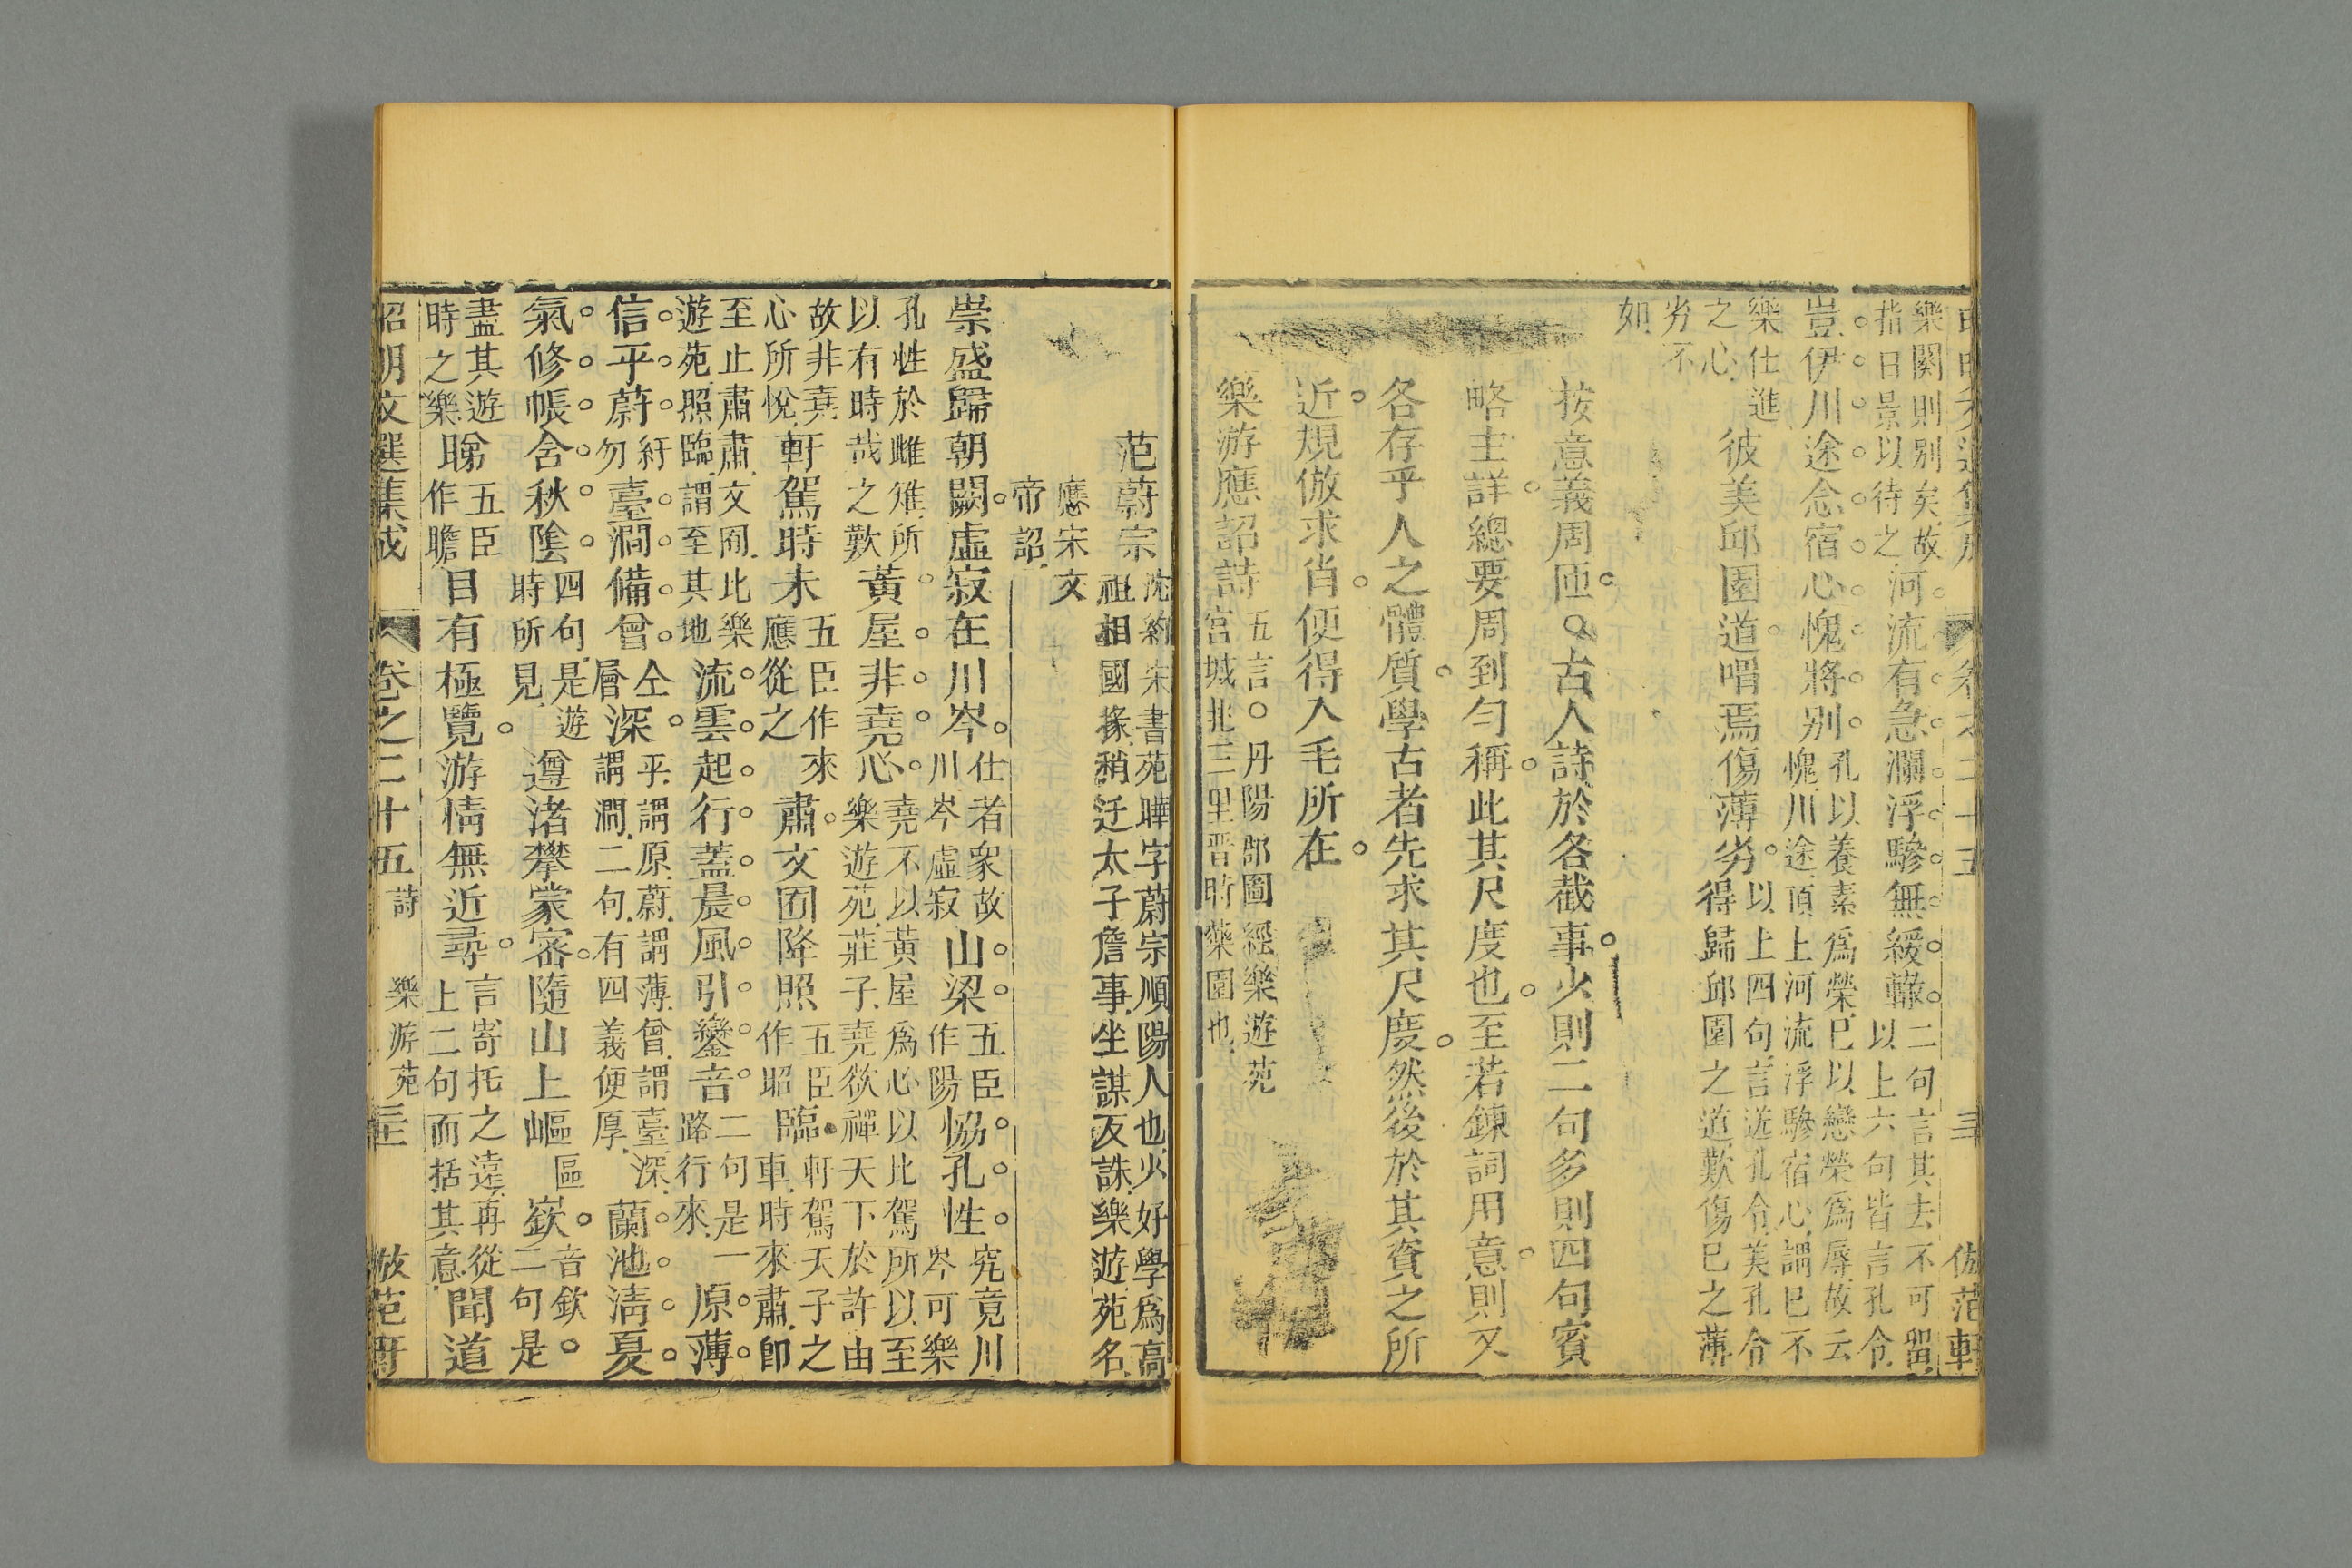 樂闋則别矣故河流有急瀾浮驂無緩轍二句言其去不可畱
指日景以待之以上六句皆言孔令
豈伊川途念宿心愧將别孔以養素爲榮巳以戀榮爲辱故云
愧川途頂上河流浮驂宿心謂巳不
樂仕進彼美邱園道喟焉傷薄劣以上四句言送孔令美孔令
之心得歸邱園之道歎傷巳之薄
劣不
如
按意義周匝○古人詩於各截事少則二句多則四句賓
略主詳總要周到勻稱此其尺度也至若錬詞用意則又
各存乎人之體質學古者先求其尺度然後於其資之所
近規倣求肖便得入毛所在
樂游應詔詩五言○丹陽郡圖經樂遊苑
宮城北三里晋時藥園也
范蔚宗沈約宋書范曄字蔚宗順陽人也少好學爲高
祖相國掾稍迁太子詹事坐謀反誅樂遊苑名
應宋文
帝詔
崇盛歸朝闕虛寂在川岑仕者衆故山梁五臣協孔性究竟川
川岑虛寂作陽岑可樂
孔性於雌雉所黃屋非堯心堯不以黃屋爲心以比駕所以至
以有時哉之歎樂遊苑莊子堯欲禪天下於許由
故非堯軒駕時未五臣作來肅文囿降照五臣臨軒駕天子之
心所悅應從之作昭車時來肅卽
至止肅肅文囿此樂流雲起行蓋晨風引鑾音二句是一原薄
遊苑照臨謂至其地路行來
信乎蔚紆臺澗備曾仝深平謂原蔚謂薄曾謂臺深蘭池淸夏
勿層謂澗二句有四義便厚
氣修帳含秋陰四句是遊遵渚攀蒙密隨山上嶇區嶔音欽
時所見二句是
盡其遊睇五臣目有極覽游情無近尋言寄托之遠再從聞道
時之樂作瞻上二句而括其意
昭明文選集成 卷之二十五 詩 樂游苑 三 倣范軒